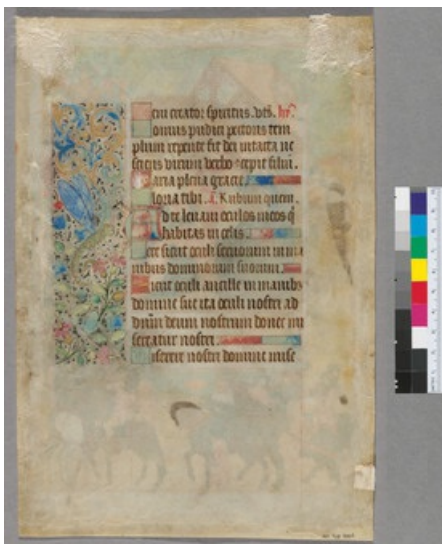 Veni creator spiritus. vēs. hȳ.
Domus pudici pectoris tem
plum repente fit dei intacta ne
sciens virum verbo cōcepit filiū.
Maria plena gracie
Gloria tibi. ā. Rubum quem.
Ad te levavi oculos meos q̄
habitas in celis.
Ecce sicut oculi servorum in ma
nibus dominorum suorum.
Sicut oculi ancille in manib⁹
domine sue ita oculi nostri ad
dn̄m deum nostrum donec mi
sereatur nostri.
Miserere nostri domine mise